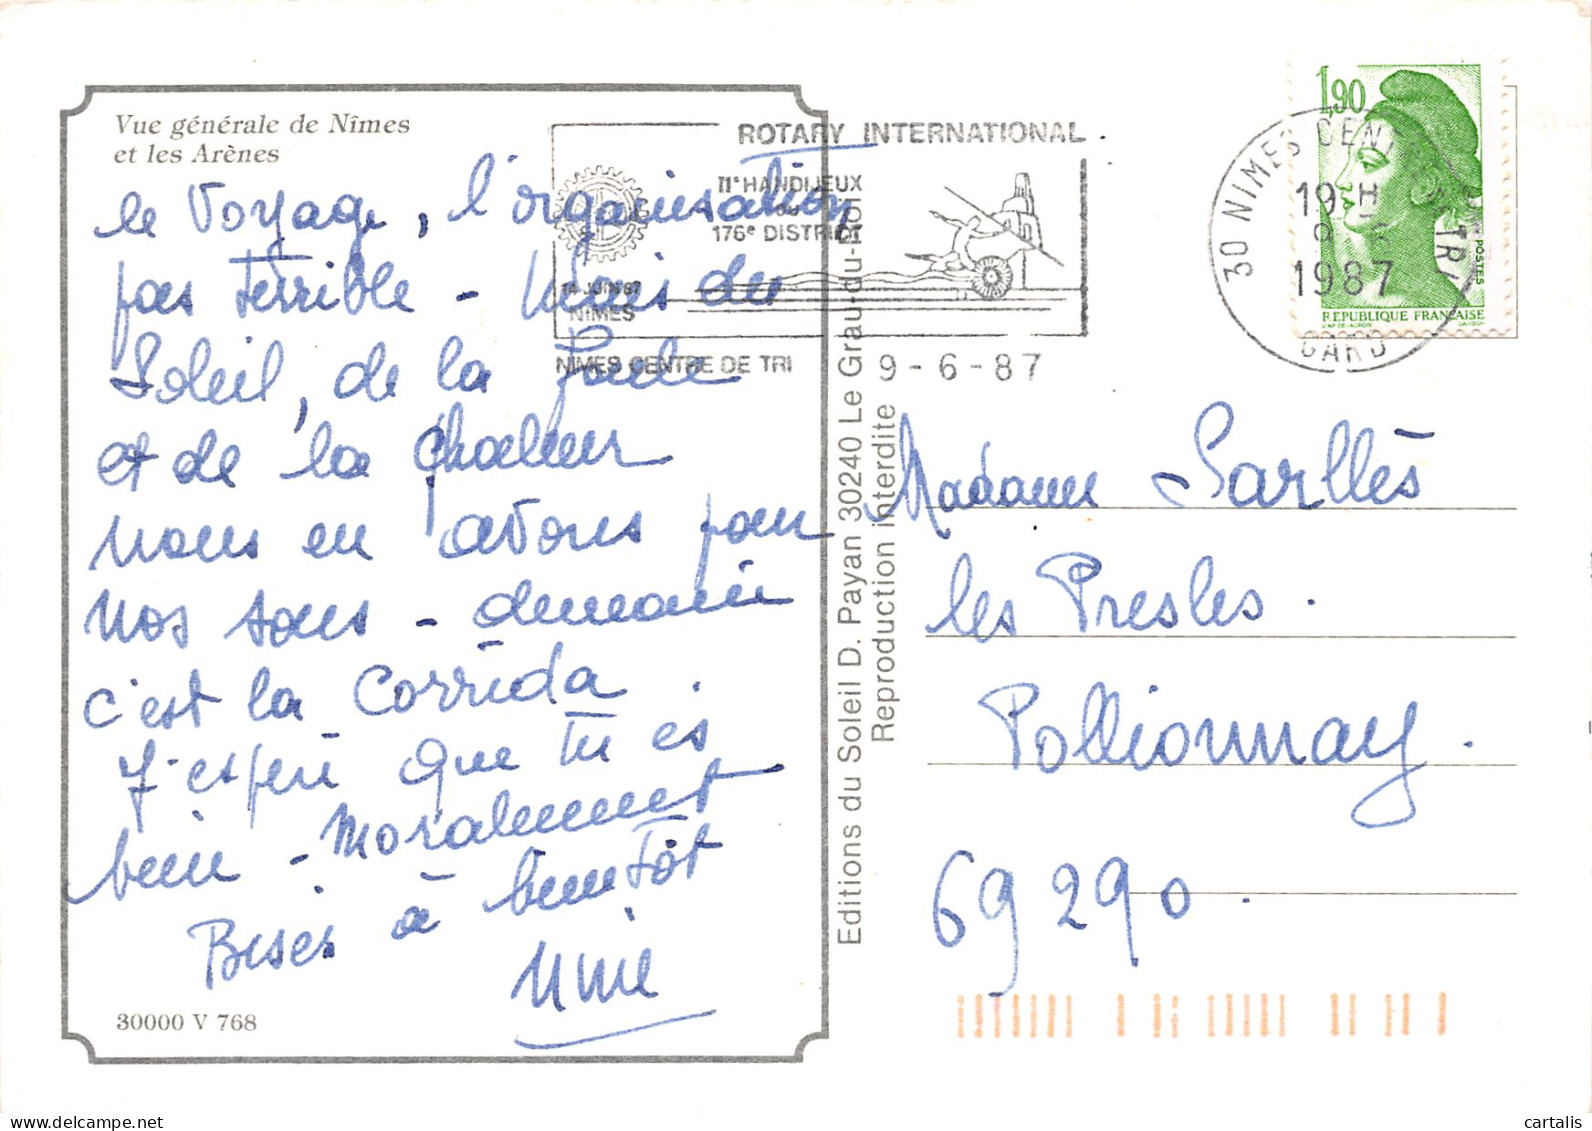 Vue générale de Nîmes
et les Arènes
le Voyage, l'organisation
pas terrible - Mais du
Soleil, de la foule
et de la chaleur
nous en avons pour
nos sous - demain
c'est la Corrida.
J'espère que tu es
bien - Moralement
Bises à bientôt
30000 V 768
ROTARY INTERNATIONAL
IIe HANDIJEUX
DU
176e DISTRICT
14 JUIN 87
NIMES
NIMES CENTRE DE TRI
9-6-87
30 NIMES CENTRE DE TRI
19 H
9-6
1987
GARD
1,90
POSTES
REPUBLIQUE FRANÇAISE
D'AP. DELACROIX GANDON
Editions du Soleil D. Payan 30240 Le Grau-du-Roi
Reproduction interdite
Madame Sarllès
les Presles.
Pollionnay.
69290.
delcampe.net
cartalis